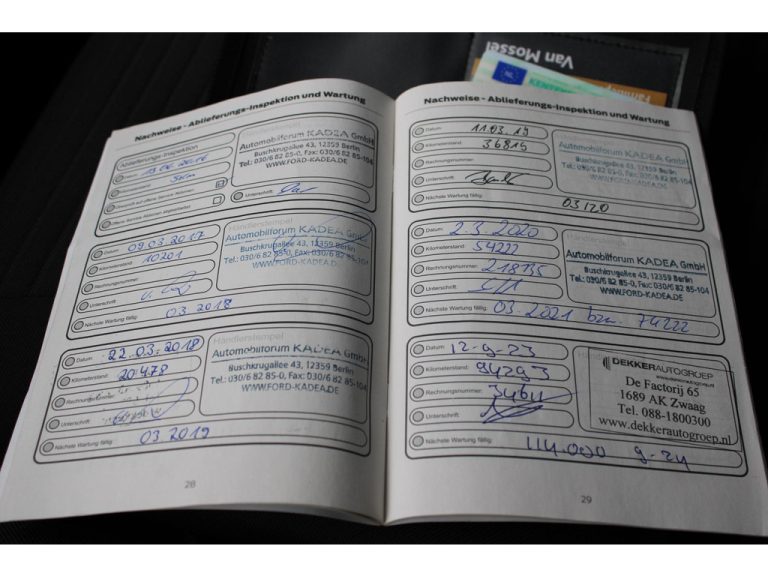 Van Mossel
Nachweise - Ablieferungs-Inspektion und Wartung
Ablieferungs-Inspektion
Automobilforum KADEA GmbH
Buschkrugallee 43, 12359 Berlin
Tel.: 030/6 82 85-0, Fax: 030/6 82 85-104
WWW.FORD-KADEA.DE
5km
Unterschrift
Händlerstempel
Datum 09.03.2017
Kilometerstand 10201
Rechnungsnummer
Unterschrift
Nächste Wartung fällig: 03.2018
Automobilforum KADEA GmbH
Buschkrugallee 43, 12359 Berlin
Tel.: 030/6 82 85-0, Fax: 030/6 82 85-104
WWW.FORD-KADEA.DE
Händlerstempel
Datum 22.03.2018
Kilometerstand: 20478
Rechnungsnummer:
Unterschrift:
Nächste Wartung fällig: 03.2019
Automobilforum KADEA GmbH
Buschkrugallee 43, 12359 Berlin
Tel.: 030/6 82 85-0, Fax: 030/6 82 85-104
WWW.FORD-KADEA.DE
28
Nachweise - Ablieferungs-Inspektion und Wartung
Datum 11.03.19
Kilometerstand: 36819
Rechnungsnummer:
Unterschrift:
Nächste Wartung fällig: 03/20
Automobilforum KADEA GmbH
Buschkrugallee 43, 12359 Berlin
Tel.: 030/6 82 85-0, Fax: 030/6 82 85-104
WWW.FORD-KADEA.DE
Datum: 2.3.2020
Kilometerstand: 54222
Rechnungsnummer:
Unterschrift:
Nächste Wartung fällig: 03.2021 bzw. 74222
Automobilforum KADEA GmbH
Buschkrugallee 43, 12359 Berlin
Tel.: 030/6 82 85-0, Fax: 030/6 82 85-104
WWW.FORD-KADEA.DE
Datum: 12-9-23
Kilometerstand: 94293
Rechnungsnummer:
Unterschrift:
Nächste Wartung fällig: 114.000 9-24
DEKKERAUTOGROEP
www.dekkerautogroep.nl
De Factorij 65
1689 AK Zwaag
Tel. 088-1800300
www.dekkerautogroep.nl
29